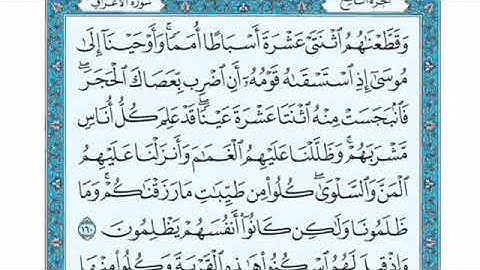 سورة الأعراف الجزء التاسع
وَقَطَّعْنَٰهُمُ ٱثْنَتَىْ عَشْرَةَ أَسْبَاطًا أُمَمًا ۚ وَأَوْحَيْنَآ إِلَىٰ
مُوسَىٰٓ إِذِ ٱسْتَسْقَىٰهُ قَوْمُهُۥٓ أَنِ ٱضْرِب بِّعَصَاكَ ٱلْحَجَرَ ۖ
فَٱنۢبَجَسَتْ مِنْهُ ٱثْنَتَا عَشْرَةَ عَيْنًا ۖ قَدْ عَلِمَ كُلُّ أُنَاسٍ
مَّشْرَبَهُمْ ۚ وَظَلَّلْنَا عَلَيْهِمُ ٱلْغَمَٰمَ وَأَنزَلْنَا عَلَيْهِمُ
ٱلْمَنَّ وَٱلسَّلْوَىٰ ۖ كُلُوا۟ مِن طَيِّبَٰتِ مَا رَزَقْنَٰكُمْ ۚ وَمَا
ظَلَمُونَا وَلَٰكِن كَانُوٓا۟ أَنفُسَهُمْ يَظْلِمُونَ ١٦٠
وَإِذْ قِيلَ لَهُمُ ٱسْكُنُوا۟ هَٰذِهِ ٱلْقَرْيَةَ وَكُلُوا۟ مِنْهَا